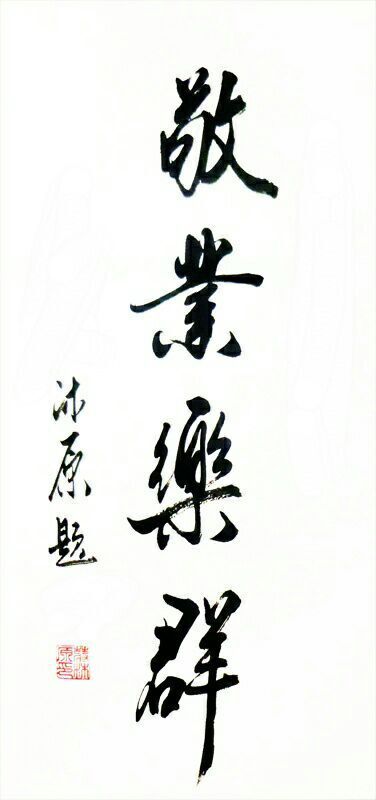 敬業樂群
沐原題